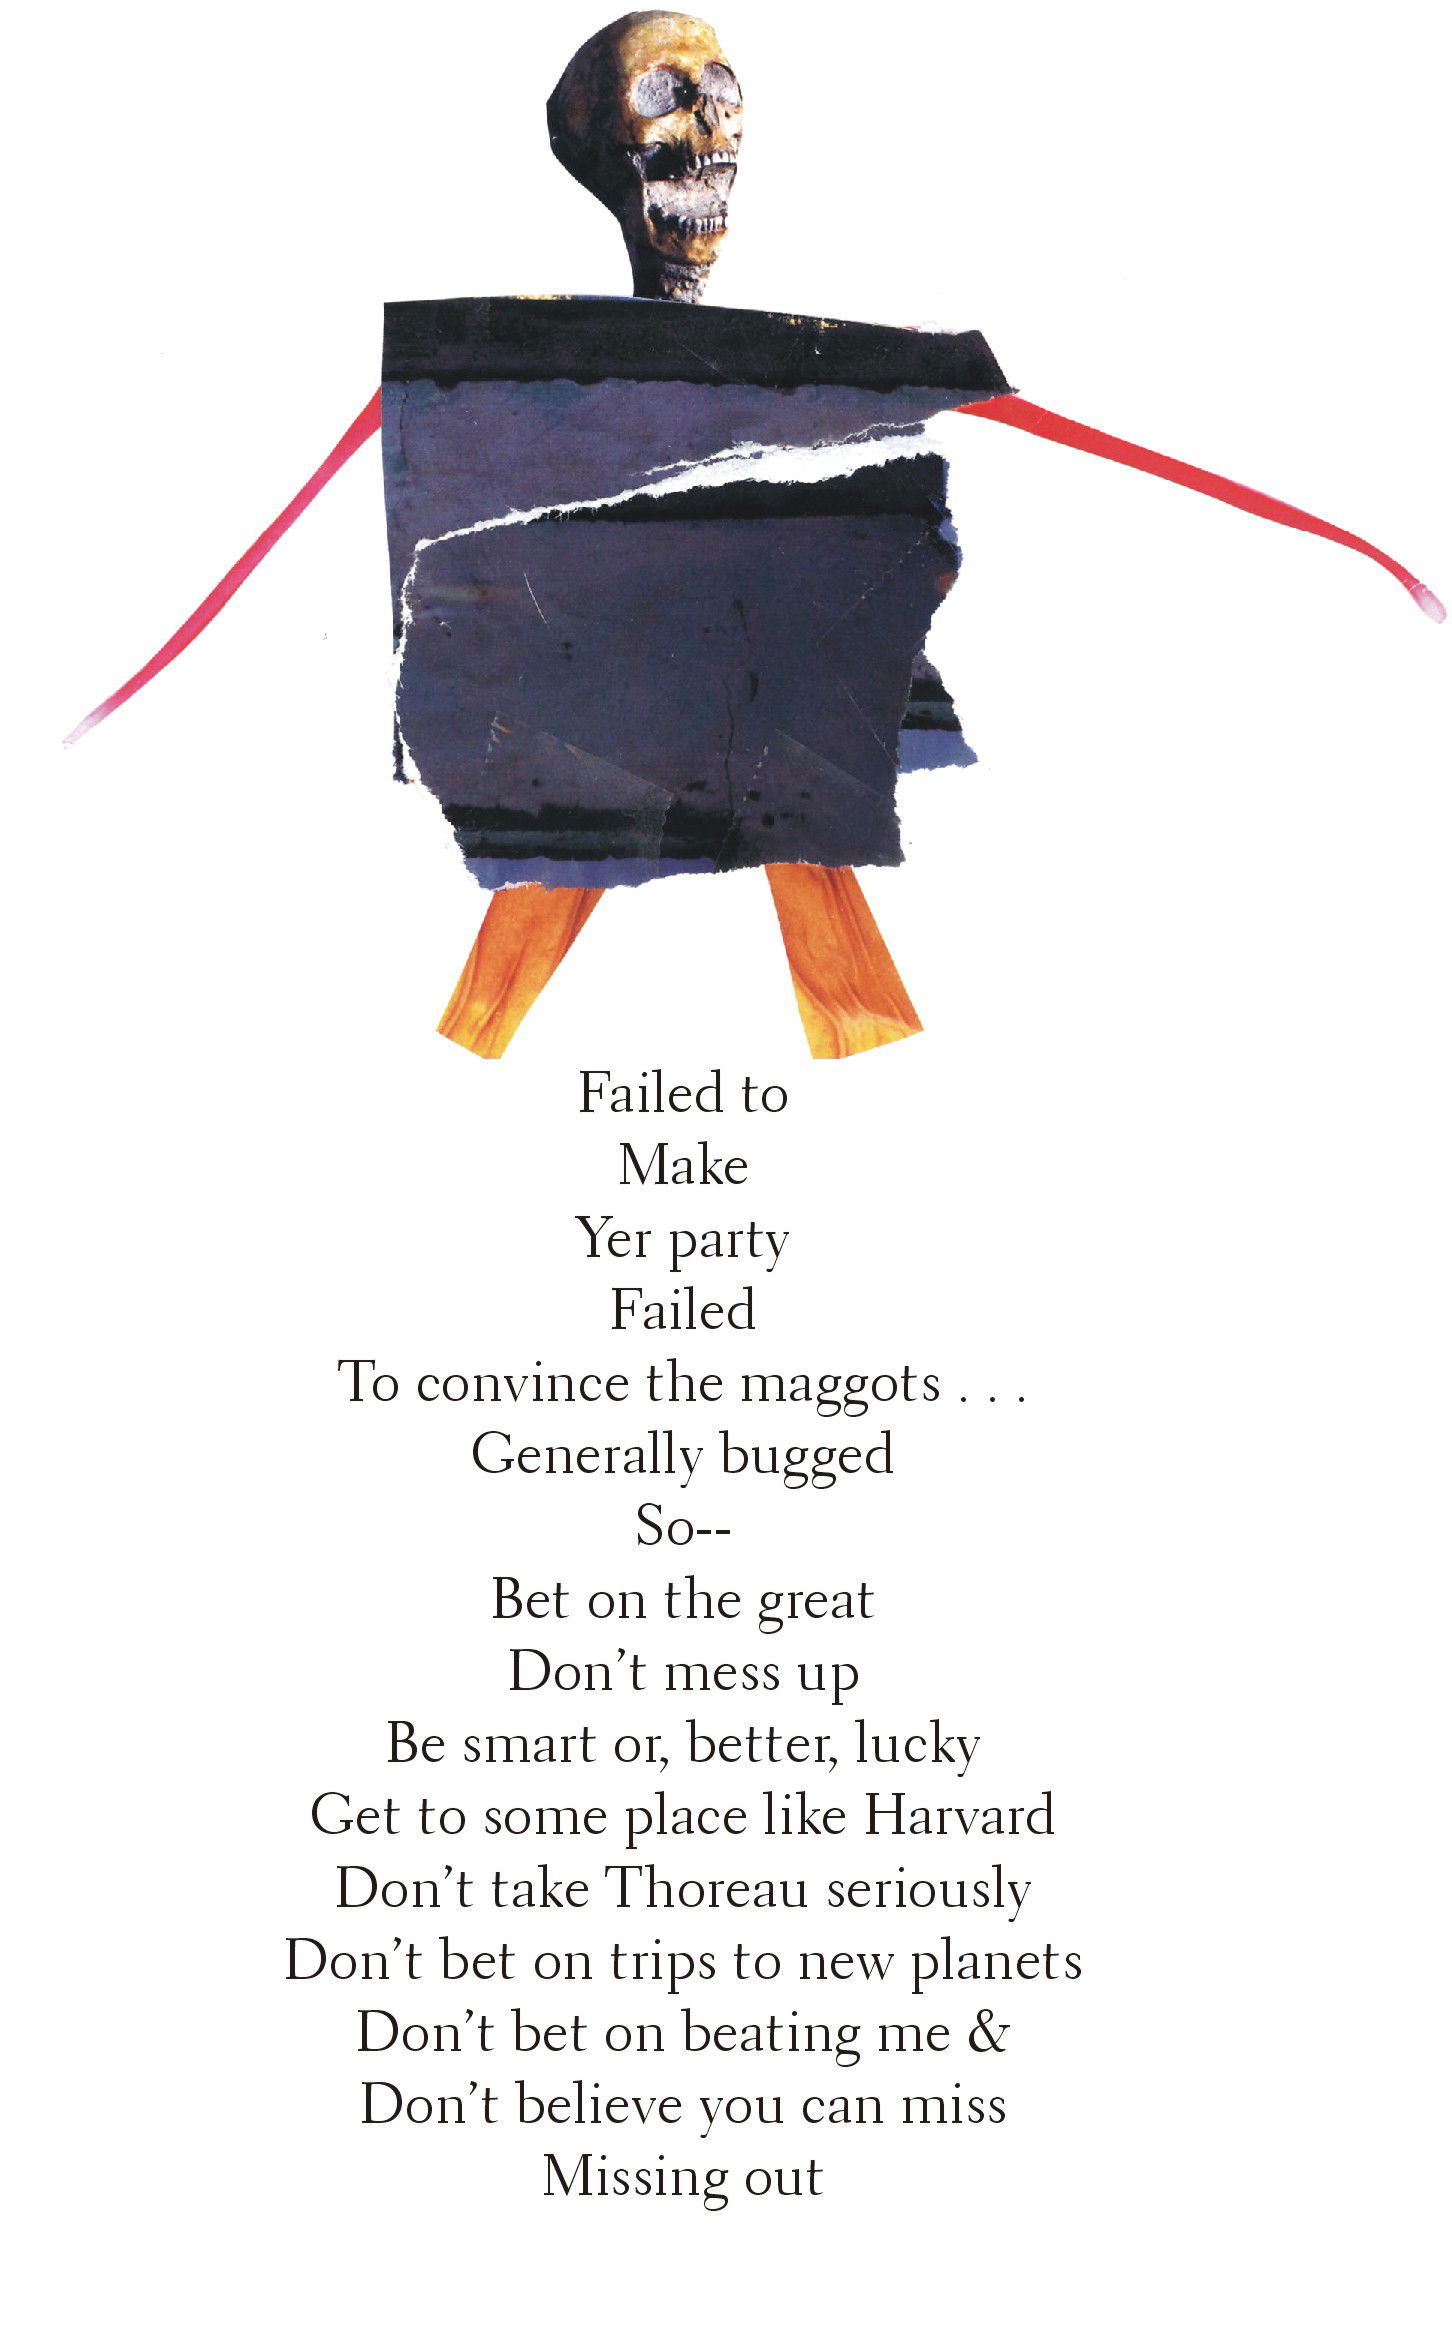 Failed to
Make
Yer party
Failed
To convince the maggots . . .
Generally bugged
So--
Bet on the great
Don’t mess up
Be smart or, better, lucky
Get to some place like Harvard
Don’t take Thoreau seriously
Don’t bet on trips to new planets
Don’t bet on beating me &
Don’t believe you can miss
Missing out